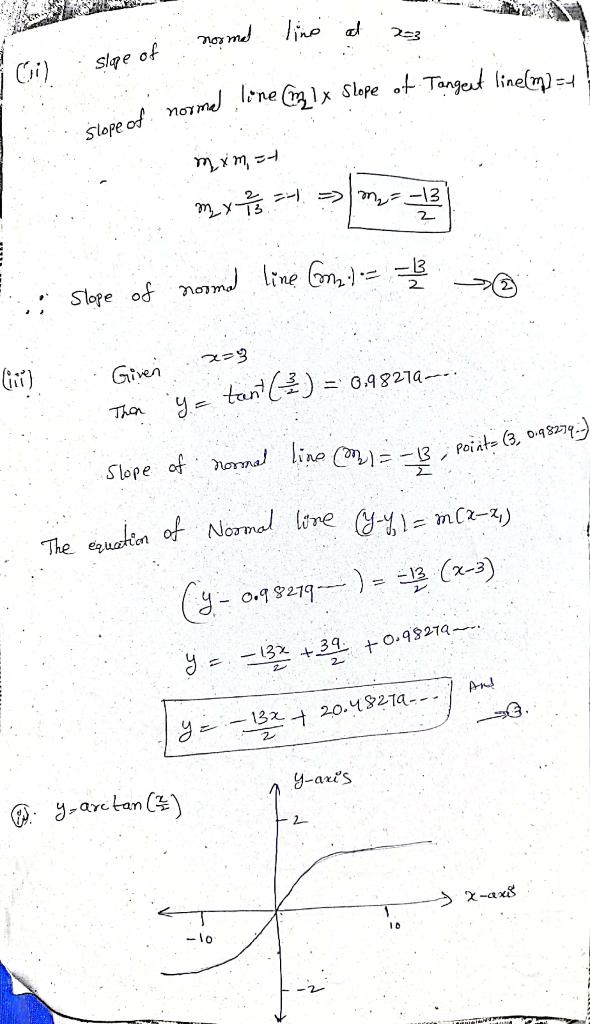 (ii) slope of normal line at x=3
slope of normal line (m₂) x slope of Tangent line(m₁) = -1
m₂ x m₁ = -1
m₂ x 2/13 = -1 ⇒ m₂ = -13/2
∴ slope of normal line (m₂) = -13/2 → ②
(iii) Given x=3
Then y = tan⁻¹(3/2) = 0.98279---
slope of normal line (m₂) = -13/2, point = (3, 0.98279--)
The equation of Normal line (y-y₁) = m(x-x₁)
(y - 0.98279---) = -13/2 (x-3)
y = -13x/2 + 39/2 + 0.98279---
y = -13x/2 + 20.48279--- Ans → ③.
y=arctan(x/2)
y-axis
2
x-axis
-10
10
-2